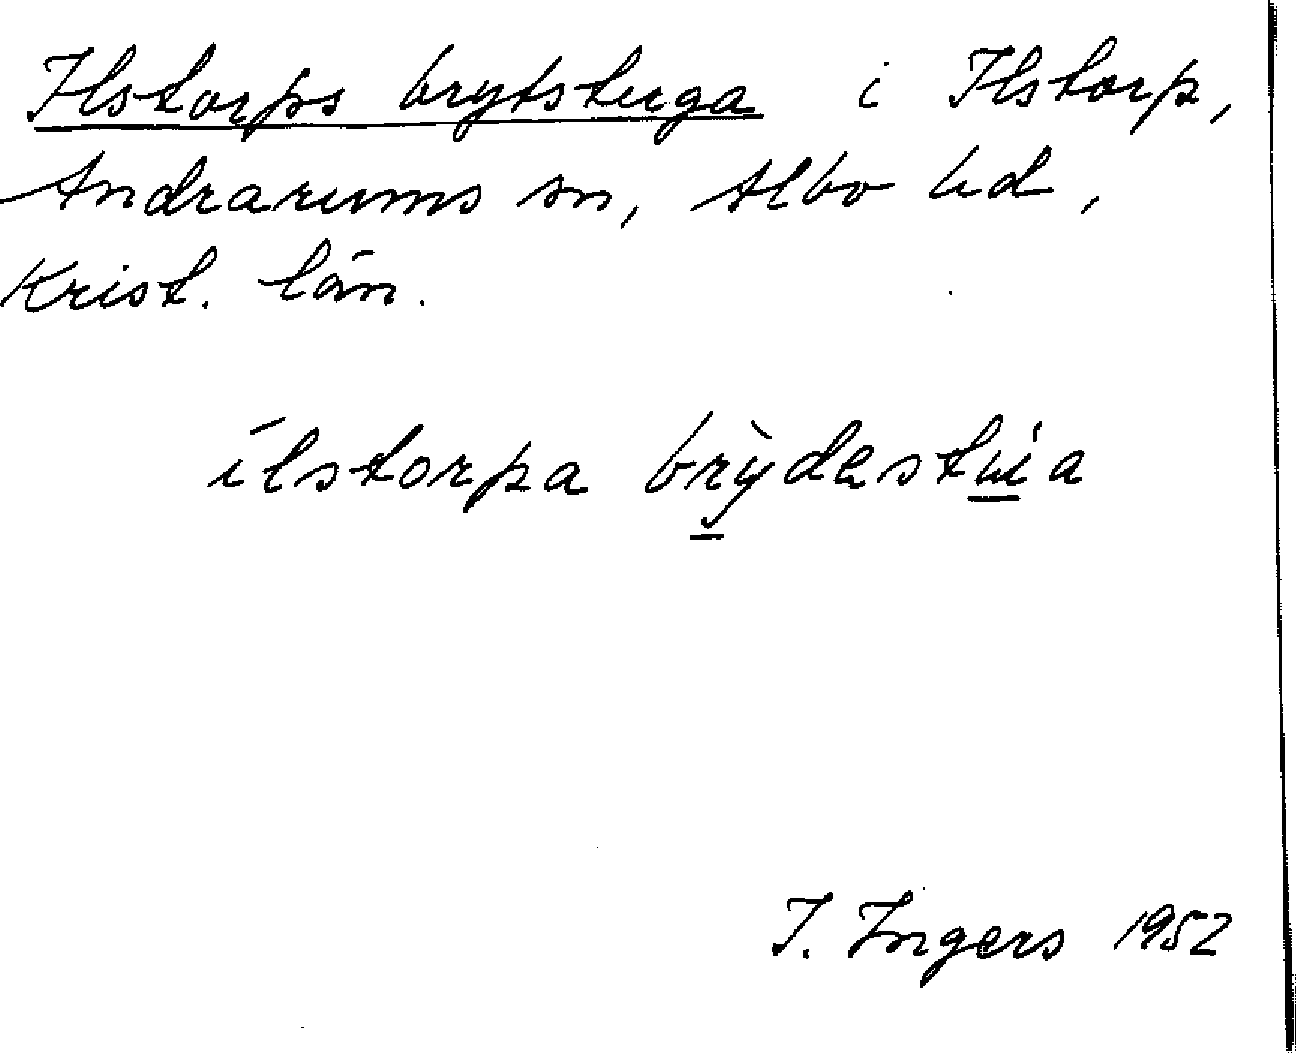 Ilstorps brytstuga i Ilstorp,
Andrarums sn, Albo hd,
Krist. län.
ílstorpa brỳdestúia
I. Ingers 1952